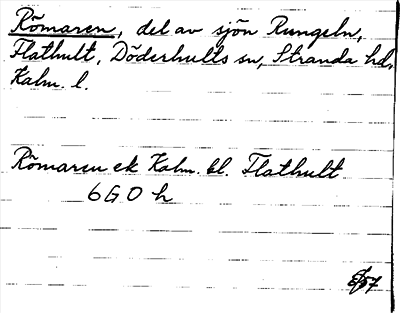 Römaren, del av sjön Rungeln,
Flathult, Döderhults sn, Stranda hd,
Kalm. l.
Römaren ek Kalm. bl. Flathult
6 G O h